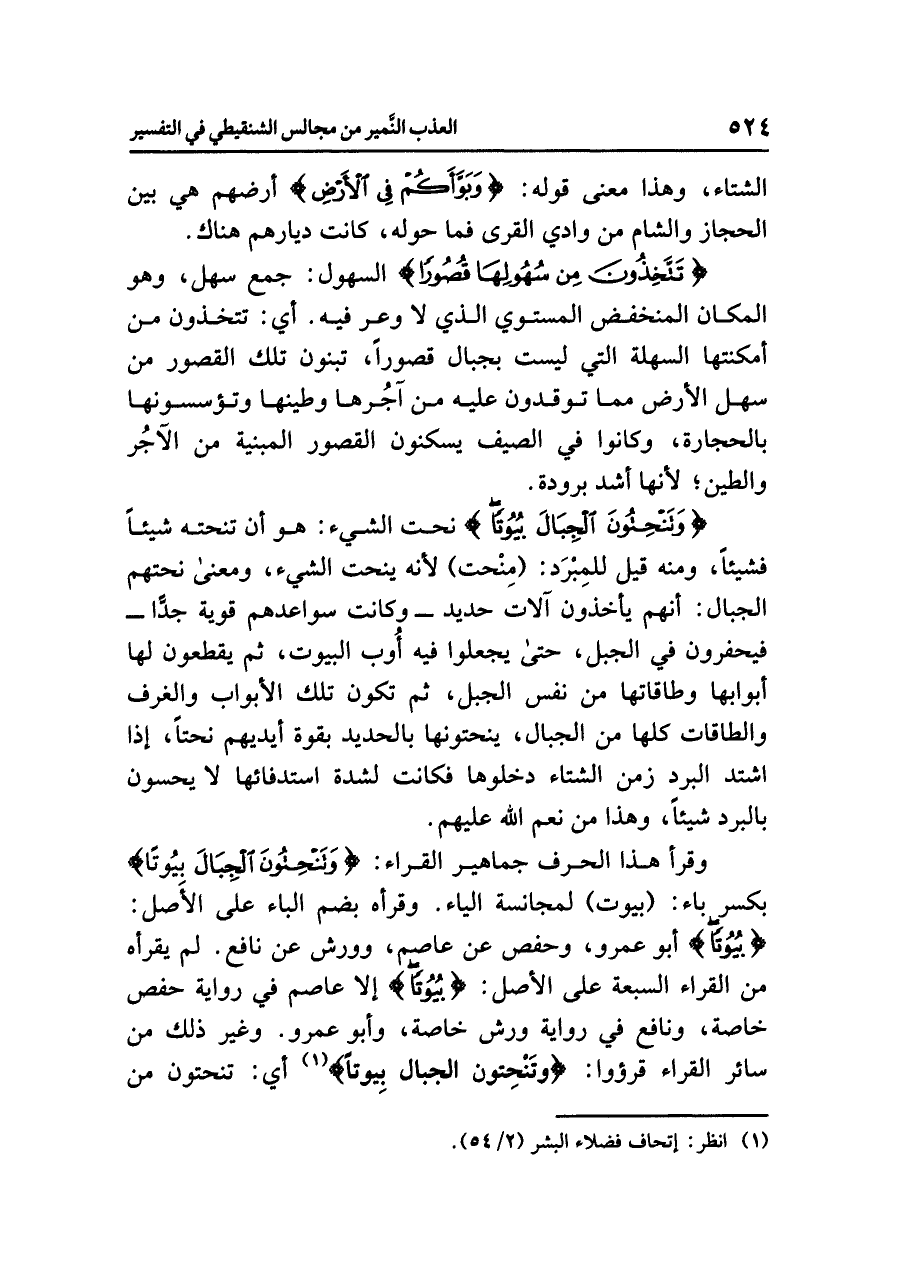 ٥٢٤ العذب النَّمير من مجالس الشنقيطي في التفسير
الشتاء، وهذا معنى قوله: ﴿وَبَوَّأَكُمْ فِي ٱلْأَرْضِ﴾ أرضهم هي بين
الحجاز والشام من وادي القرى فما حوله، كانت ديارهم هناك.
﴿تَتَّخِذُونَ مِن سُهُولِهَا قُصُورًا﴾ السهول: جمع سهل، وهو
المكان المنخفض المستوي الذي لا وعر فيه. أي: تتخذون من
أمكنتها السهلة التي ليست بجبال قصوراً، تبنون تلك القصور من
سهل الأرض مما توقدون عليه من آجُرها وطينها وتؤسسونها
بالحجارة، وكانوا في الصيف يسكنون القصور المبنية من الآجُر
والطين؛ لأنها أشد برودة.
﴿وَتَنْحِتُونَ ٱلْجِبَالَ بُيُوتًاۖ﴾ نحت الشيء: هو أن تنحته شيئاً
فشيئاً، ومنه قيل للمِبْرَد: (مِنْحت) لأنه ينحت الشيء، ومعنىٰ نحتهم
الجبال: أنهم يأخذون آلات حديد ــ وكانت سواعدهم قوية جدًّا ــ
فيحفرون في الجبل، حتىٰ يجعلوا فيه أُوب البيوت، ثم يقطعون لها
أبوابها وطاقاتها من نفس الجبل، ثم تكون تلك الأبواب والغرف
والطاقات كلها من الجبال، ينحتونها بالحديد بقوة أيديهم نحتاً، إذا
اشتد البرد زمن الشتاء دخلوها فكانت لشدة استدفائها لا يحسون
بالبرد شيئاً، وهذا من نعم الله عليهم.
وقرأ هذا الحرف جماهير القراء: ﴿وَتَنْحِتُونَ ٱلْجِبَالَ بِيُوتًا﴾
بكسر باء: (بيوت) لمجانسة الياء. وقرأه بضم الباء على الأصل:
﴿بُيُوتًاۖ﴾ أبو عمرو، وحفص عن عاصم، وورش عن نافع. لم يقرأه
من القراء السبعة على الأصل: ﴿بُيُوتًاۖ﴾ إلا عاصم في رواية حفص
خاصة، ونافع في رواية ورش خاصة، وأبو عمرو. وغير ذلك من
سائر القراء قرؤوا: ﴿وتَنْحِتون الجبال بِيوتاً﴾(١) أي: تنحتون من
(١) انظر: إتحاف فضلاء البشر (٢/ ٥٤).